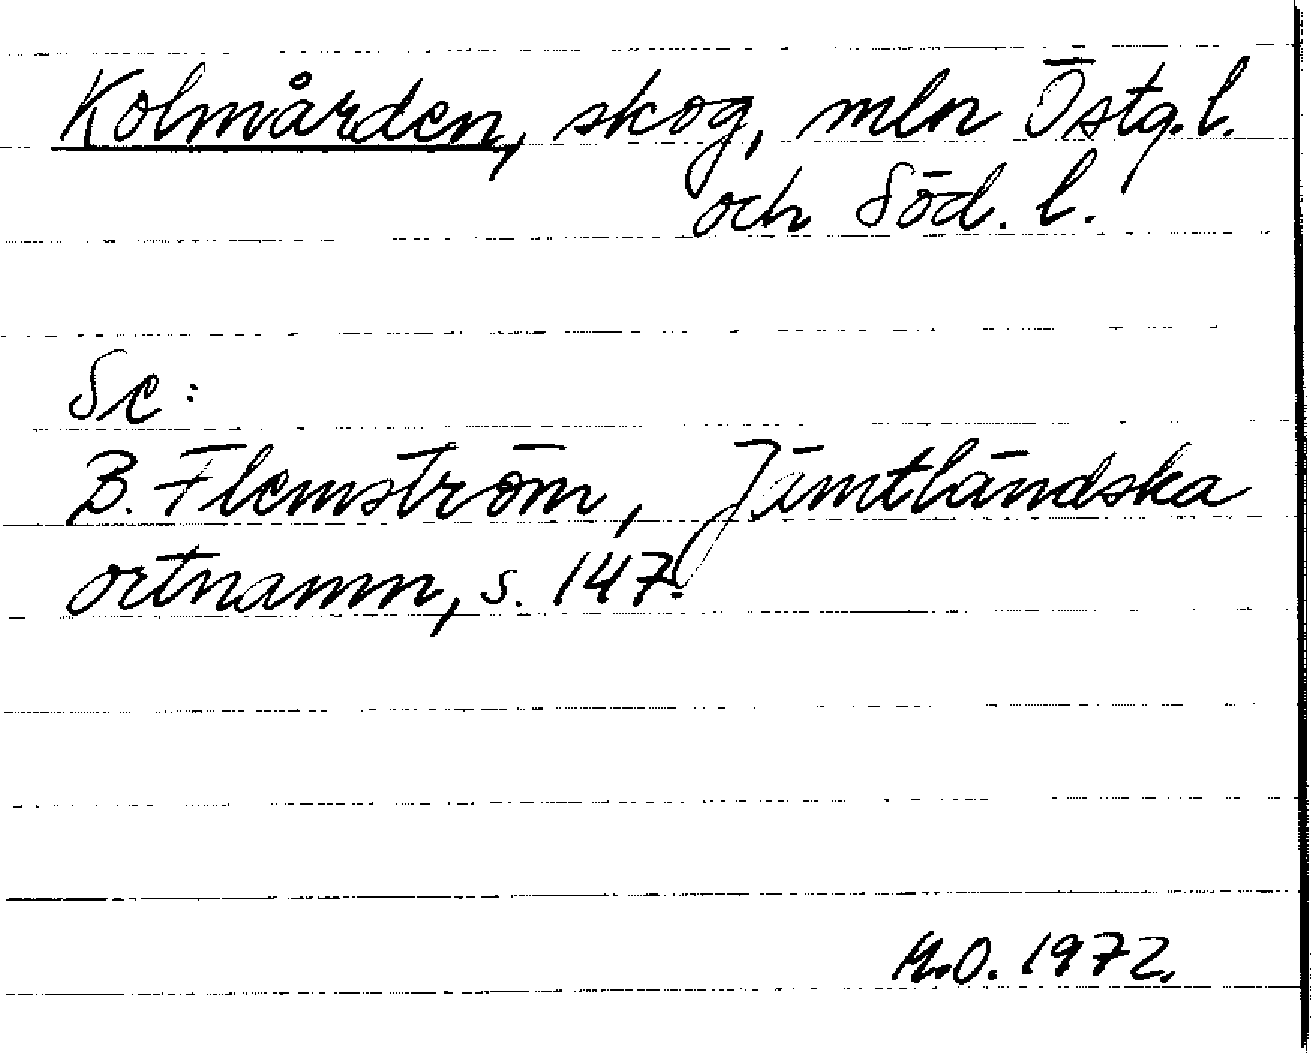 Kolmården, skog, mln Östg.l.
och Söd. l.
Se:
B. Flemström, Jämtländska
ortnamn, s. 147.
M.O. 1972.